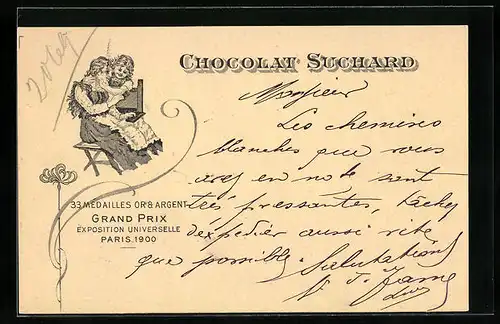 CHOCOLAT SUCHARD
Monsieur
Les chemises
blanches que vous
avez en note sont
très pressantes, tachez
d'expédier aussi vite
que possible. Salutations
33 MÉDAILLES OR & ARGENT
GRAND PRIX
EXPOSITION UNIVERSELLE
PARIS.1900